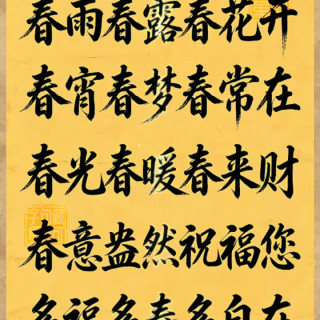 春雨春露春花开
春宵春梦春常在
春光春暖春来财
春意盎然祝福您
多福多寿多自在